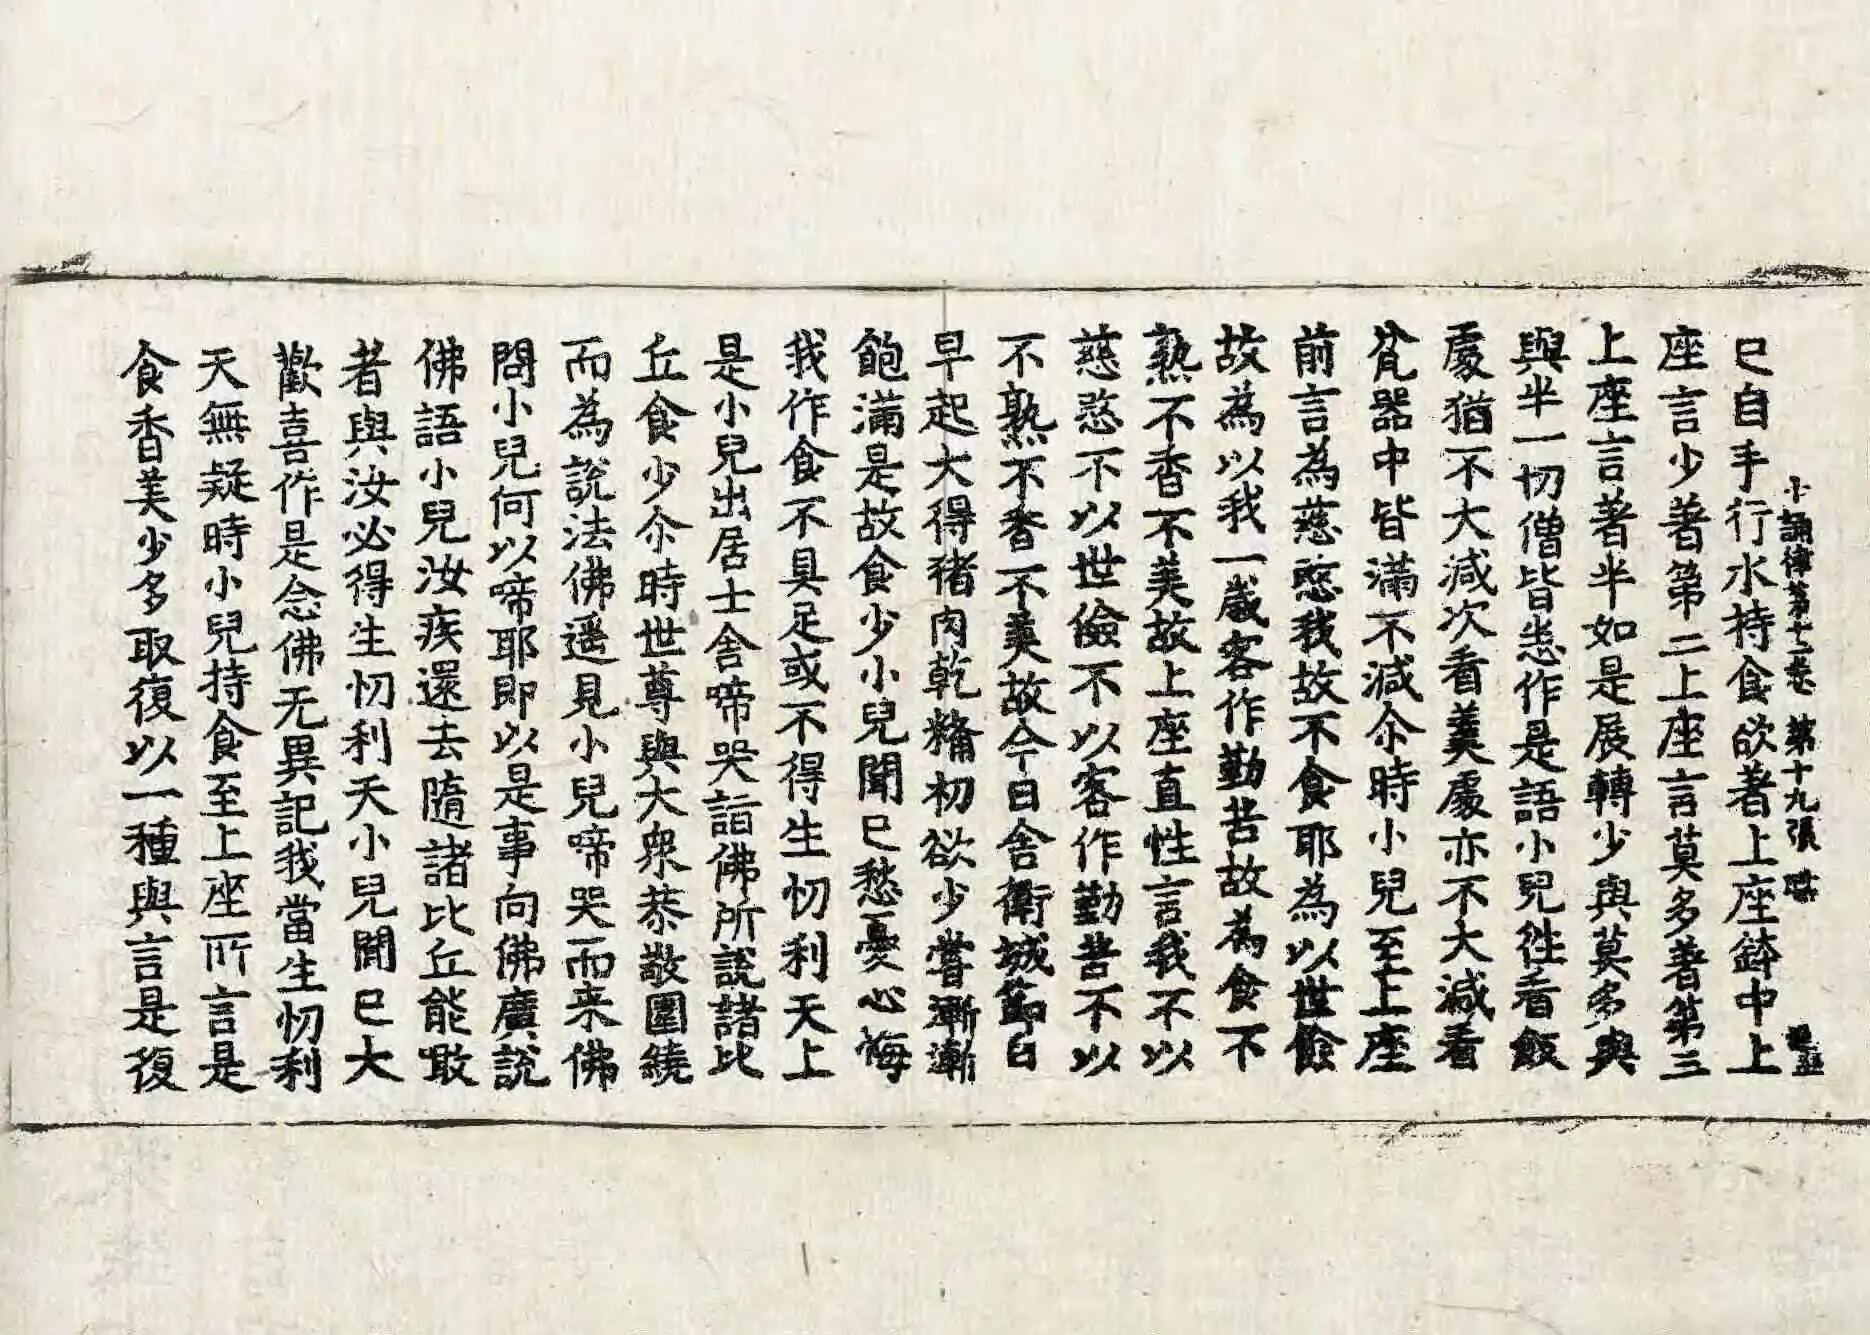 已自手行水持食欲著上座鉢中上
十誦律第十二卷 第十九張
座言少著第二上座言莫多著第三
上座言著半如是展轉少與莫多與
與半一切僧皆悉作是語小兒徃看飯
處猶不大減次看羹處亦不大減看
瓫器中皆滿不減尒時小兒至上座
前言為慈愍我故不食耶為以世儉
故為以我一歲客作勤苦故為食不
熟不香不美故上座直性言我不以
慈愍不以世儉不以客作勤苦不以
不熟不香不美故今日舍衛城節日
早起大得猪肉乾糒初欲少嘗漸漸
飽滿是故食少小兒聞已愁憂心悔
我作食不具足或不得生忉利天上
是小兒出居士舍啼哭詣佛所說諸比
丘食少尒時世尊與大衆恭敬圍繞
而為說法佛遥見小兒啼哭而来佛
問小兒何以啼耶即以是事向佛廣說
佛語小兒汝疾還去隨諸比丘能噉
者與汝必得生忉利天小兒聞已大
歡喜作是念佛无異記我當生忉利
天無疑時小兒持食至上座所言是
食香美少多取復以一種與言是復